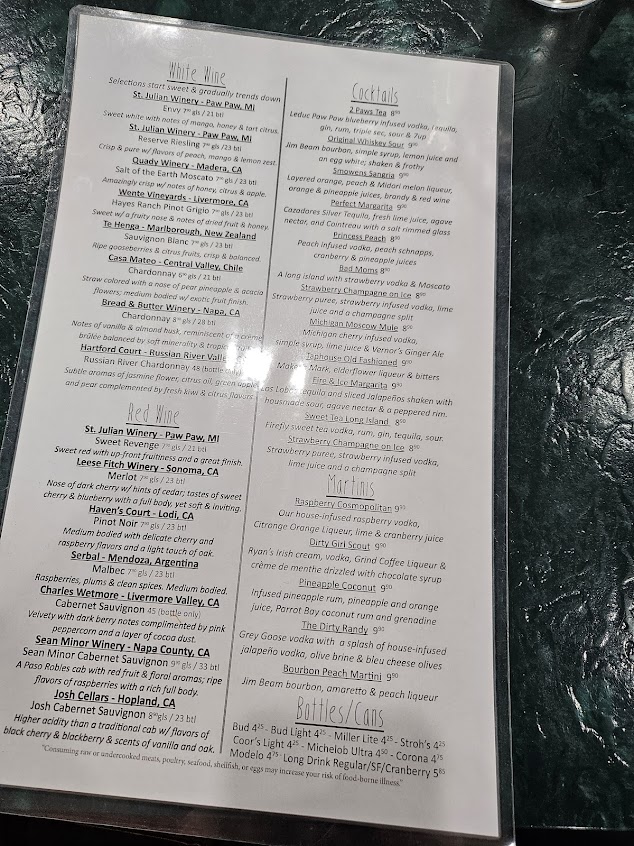 White Wine
Selections start sweet & gradually trends down
St. Julian Winery - Paw Paw, MI
Envy 7⁰⁰ gls / 21 btl
Sweet white with notes of mango, honey & tart citrus.
St. Julian Winery - Paw Paw, MI
Reserve Riesling 7⁵⁰ gls /23 btl
Crisp & pure w/ flavors of peach, mango & lemon zest.
Quady Winery - Madera, CA
Salt of the Earth Moscato 7⁵⁰ gls / 23 btl
Amazingly crisp w/ notes of honey, citrus & apple.
Wente Vineyards - Livermore, CA
Hayes Ranch Pinot Grigio 7⁵⁰ gls / 23 btl
Sweet w/ a fruity nose & notes of dried fruit & honey.
Te Henga - Marlborough, New Zealand
Sauvignon Blanc 7⁵⁰ gls / 23 btl
Ripe gooseberries & citrus fruits, crisp & balanced.
Casa Mateo - Central Valley, Chile
Chardonnay 6⁵⁰ gls / 21 btl
Straw colored with a nose of pear pineapple & acacia
flowers; medium bodied w/ exotic fruit finish.
Bread & Butter Winery - Napa, CA
Chardonnay 8⁵⁰ gls / 28 btl
Notes of vanilla & almond husk, reminiscent of a crème
brûlée balanced by soft minerality &
Hartford Court - Russian River Valley
Russian River Chardonnay 48 (bottle
Subtle aromas of jasmine flower, citrus oil, green apple
and pear complemented by fresh kiwi & citrus flavors
Red Wine
St. Julian Winery - Paw Paw, MI
Sweet Revenge 7⁰⁰ gls / 21 btl
Sweet red with up-front fruitiness and a great finish.
Leese Fitch Winery - Sonoma, CA
Merlot 7⁵⁰ gls / 23 btl
Nose of dark cherry w/ hints of cedar; tastes of sweet
cherry & blueberry with a full body, yet soft & inviting.
Haven's Court - Lodi, CA
Pinot Noir 7⁵⁰ gls / 23 btl
Medium bodied with delicate cherry and
raspberry flavors and a light touch of oak.
Serbal - Mendoza, Argentina
Malbec 7⁵⁰ gls / 23 btl
Raspberries, plums & clean spices. Medium bodied.
Charles Wetmore - Livermore Valley, CA
Cabernet Sauvignon 45 (bottle only)
Velvety with dark berry notes complimented by pink
peppercorn and a layer of cocoa dust.
Sean Minor Winery - Napa County, CA
Sean Minor Cabernet Sauvignon 9⁵⁰ gls / 33 btl
A Paso Robles cab with red fruit & floral aromas; ripe
flavors of raspberries with a rich full body.
Josh Cellars - Hopland, CA
Josh Cabernet Sauvignon 8⁰⁰ gls / 23 btl
Higher acidity than a traditional cab w/ flavors of
black cherry & blackberry & scents of vanilla and oak.
Cocktails
2 Paws Tea 8⁵⁰
Leduc Paw Paw blueberry infused vodka, tequila,
gin, rum, triple sec, sour & 7up
Original Whiskey Sour 9⁵⁰
Jim Beam bourbon, simple syrup, lemon juice and
an egg white; shaken & frothy
Smowens Sangria 9⁵⁰
Layered orange, peach & Midori melon liqueur,
orange & pineapple juices, brandy & red wine
Perfect Margarita 9⁵⁰
Cazadores Silver Tequila, fresh lime juice, agave
nectar, and Cointreau with a salt rimmed glass
Princess Peach 8⁵⁰
Peach infused vodka, peach schnapps,
cranberry & pineapple juices
Bad Moms 8⁵⁰
A long island with strawberry vodka & Moscato
Strawberry Champagne on Ice 8⁵⁰
Strawberry puree, strawberry infused vodka, lime
juice and a champagne split
Michigan Moscow Mule 8⁵⁰
Michigan cherry infused vodka,
simple syrup, lime juice & Vernor's Ginger Ale
Taphouse Old Fashioned 9⁵⁰
Maker's Mark, elderflower liqueur & bitters
Fire & Ice Margarita 9⁵⁰
Las Lobos tequila and sliced Jalapeños shaken with
housmade sour, agave nectar & a peppered rim.
Sweet Tea Long Island 8⁵⁰
Firefly sweet tea vodka, rum, gin, tequila, sour.
Strawberry Champagne on Ice 8⁵⁰
Strawberry puree, strawberry infused vodka,
lime juice and a champagne split
Martinis
Raspberry Cosmopolitan 9⁵⁰
Our house-infused raspberry vodka,
Citronge Orange Liqueur, lime & cranberry juice
Dirty Girl Scout 9⁵⁰
Ryan's Irish cream, vodka, Grind Coffee Liqueur &
crème de menthe drizzled with chocolate syrup
Pineapple Coconut 9⁵⁰
Infused pineapple rum, pineapple and orange
juice, Parrot Bay coconut rum and grenadine
The Dirty Randy 9⁵⁰
Grey Goose vodka with a splash of house-infused
jalapeño vodka, olive brine & bleu cheese olives
Bourbon Peach Martini 9⁵⁰
Jim Beam bourbon, amaretto & peach liqueur
Bottles/Cans
Bud 4²⁵ - Bud Light 4²⁵ - Miller Lite 4²⁵ - Stroh's 4²⁵
Coor's Light 4²⁵ - Michelob Ultra 4⁵⁰ - Corona 4⁷⁵
Modelo 4⁷⁵ Long Drink Regular/SF/Cranberry 5⁸⁵
"Consuming raw or undercooked meats, poultry, seafood, shellfish, or eggs may increase your risk of food-borne illness."